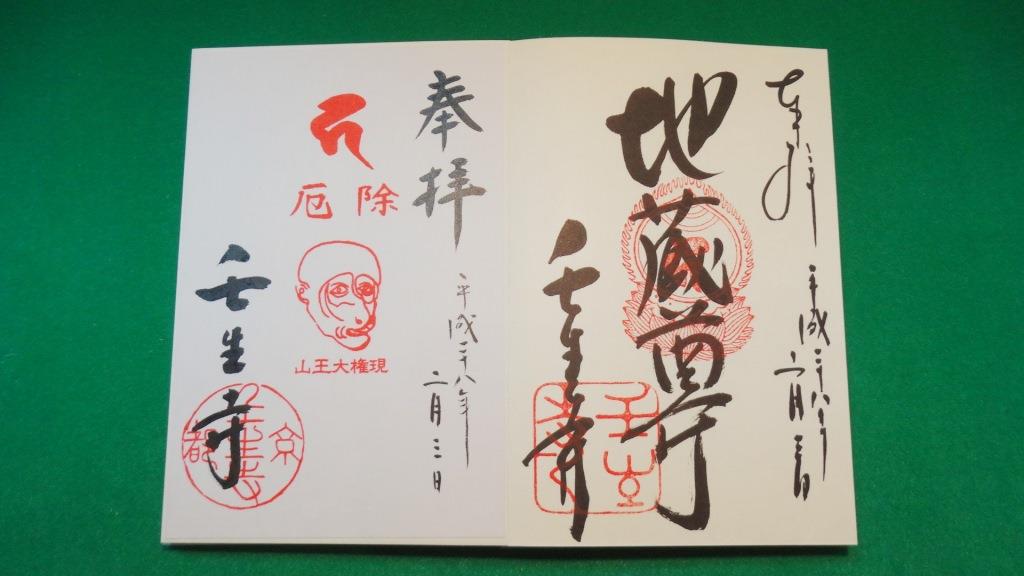 奉拝
平成二十八年
二月三日
地蔵尊
壬生寺
壬生寺
奉拝
平成二十八年
二月三日
厄除
山王大権現
壬生寺
京都
壬生寺